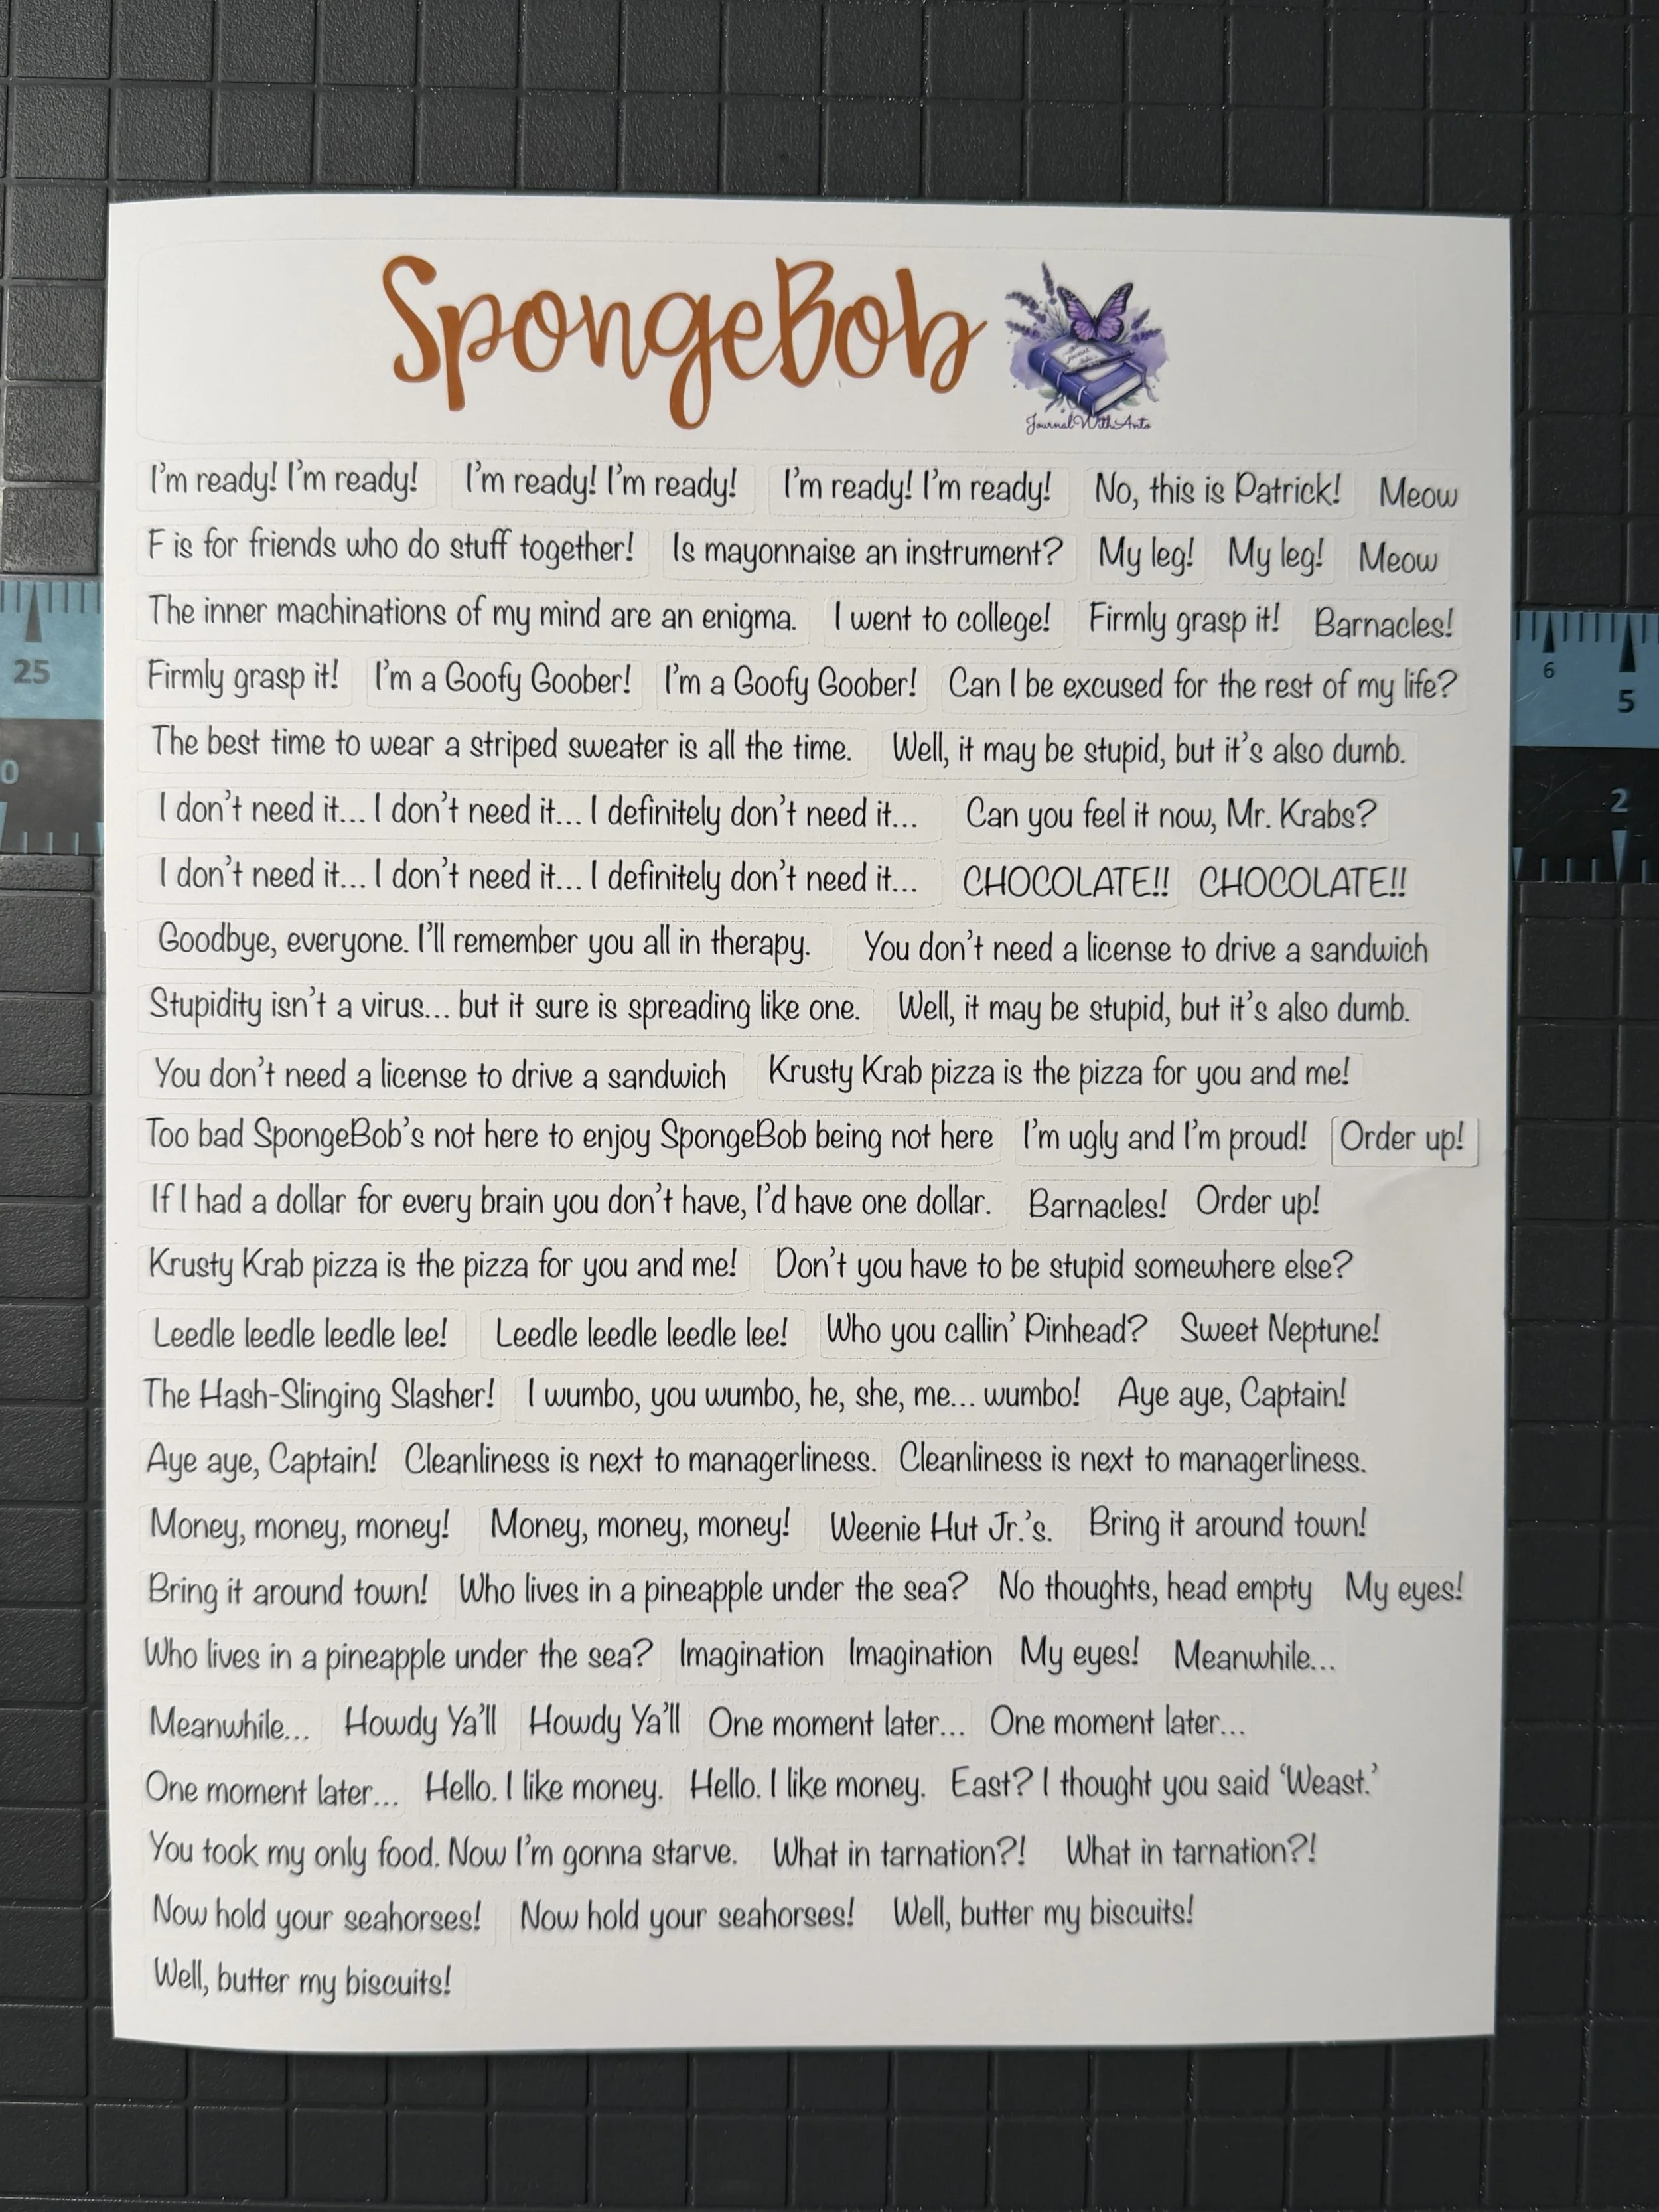 SpongeBob
JournalWithAnto
I'm ready! I'm ready! I'm ready! I'm ready! I'm ready! I'm ready! No, this is Patrick! Meow
F is for friends who do stuff together! Is mayonnaise an instrument? My leg! My leg! Meow
The inner machinations of my mind are an enigma. I went to college! Firmly grasp it! Barnacles!
Firmly grasp it! I'm a Goofy Goober! I'm a Goofy Goober! Can I be excused for the rest of my life?
The best time to wear a striped sweater is all the time. Well, it may be stupid, but it's also dumb.
I don't need it... I don't need it... I definitely don't need it... Can you feel it now, Mr. Krabs?
I don't need it... I don't need it... I definitely don't need it... CHOCOLATE!! CHOCOLATE!!
Goodbye, everyone. I'll remember you all in therapy. You don't need a license to drive a sandwich
Stupidity isn't a virus... but it sure is spreading like one. Well, it may be stupid, but it's also dumb.
You don't need a license to drive a sandwich Krusty Krab pizza is the pizza for you and me!
Too bad SpongeBob's not here to enjoy SpongeBob being not here I'm ugly and I'm proud! Order up!
If I had a dollar for every brain you don't have, I'd have one dollar. Barnacles! Order up!
Krusty Krab pizza is the pizza for you and me! Don't you have to be stupid somewhere else?
Leedle leedle leedle lee! Leedle leedle leedle lee! Who you callin' Pinhead? Sweet Neptune!
The Hash-Slinging Slasher! I wumbo, you wumbo, he, she, me... wumbo! Aye aye, Captain!
Aye aye, Captain! Cleanliness is next to managerliness. Cleanliness is next to managerliness.
Money, money, money! Money, money, money! Weenie Hut Jr.'s. Bring it around town!
Bring it around town! Who lives in a pineapple under the sea? No thoughts, head empty My eyes!
Who lives in a pineapple under the sea? Imagination Imagination My eyes! Meanwhile...
Meanwhile... Howdy Ya'll Howdy Ya'll One moment later... One moment later...
One moment later... Hello. I like money. Hello. I like money. East? I thought you said 'Weast.'
You took my only food. Now I'm gonna starve. What in tarnation?! What in tarnation?!
Now hold your seahorses! Now hold your seahorses! Well, butter my biscuits!
Well, butter my biscuits!
25
0
6
5
2